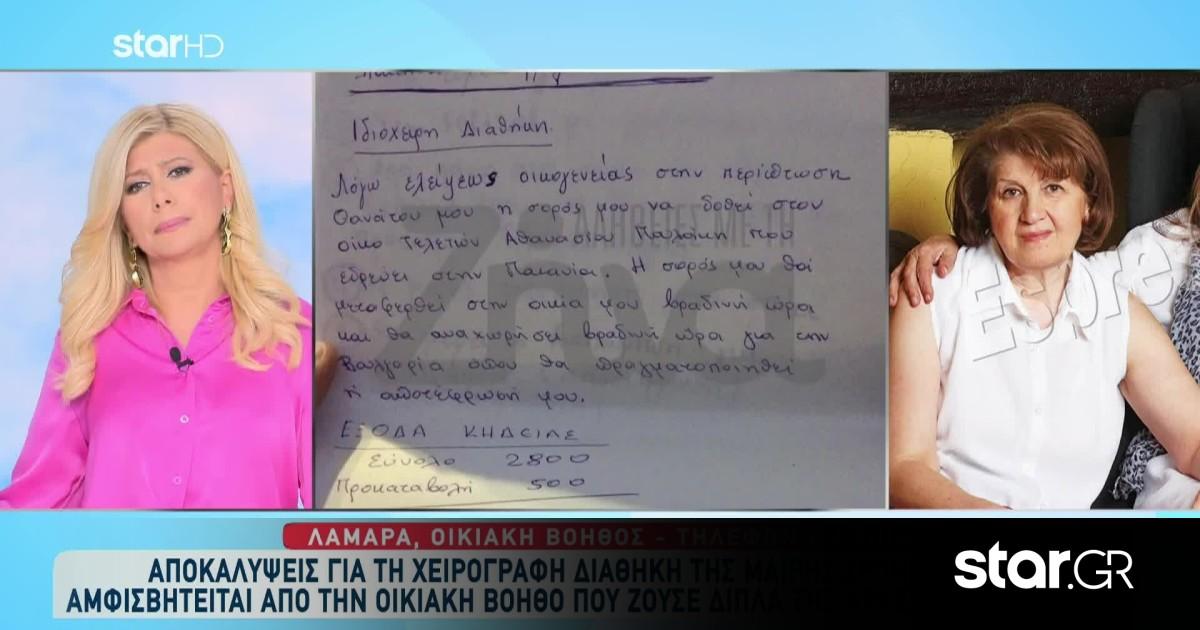 star HD
Ιδιόχειρη Διαθήκη
Λόγω ελείψεως οικογενείας στην περίπτωση
θανάτου μου η σορός μου να δοθεί στον
οίκο τελετών Αθανασίου Παυλάκη που
εδρεύει στην Παιανία. Η σορός μου θα
μεταφερθεί στην οικία μου βραδινή ώρα
και θα αναχωρήσει βραδινή ώρα για την
Βουλγαρία όπου θα πραγματοποιηθεί
η αποτέφρωσή μου.
ΕΞΟΔΑ ΚΗΔΕΙΑΣ
Σύνολο 2800
Προκαταβολή 500
ΑΛΗΘΕΙΕΣ ΜΕ ΤΗ
Ζήνα
Espre
ΛΑΜΑΡΑ, ΟΙΚΙΑΚΗ ΒΟΗΘΟΣ - ΤΗΛΕΦΩΝ
ΑΠΟΚΑΛΥΨΕΙΣ ΓΙΑ ΤΗ ΧΕΙΡΟΓΡΑΦΗ ΔΙΑΘΗΚΗ ΤΗΣ
ΑΜΦΙΣΒΗΤΕΙΤΑΙ ΑΠΟ ΤΗΝ ΟΙΚΙΑΚΗ ΒΟΗΘΟ ΠΟΥ ΖΟΥΣΕ ΔΙΠΛΑ ΤΗΣ
star.GR